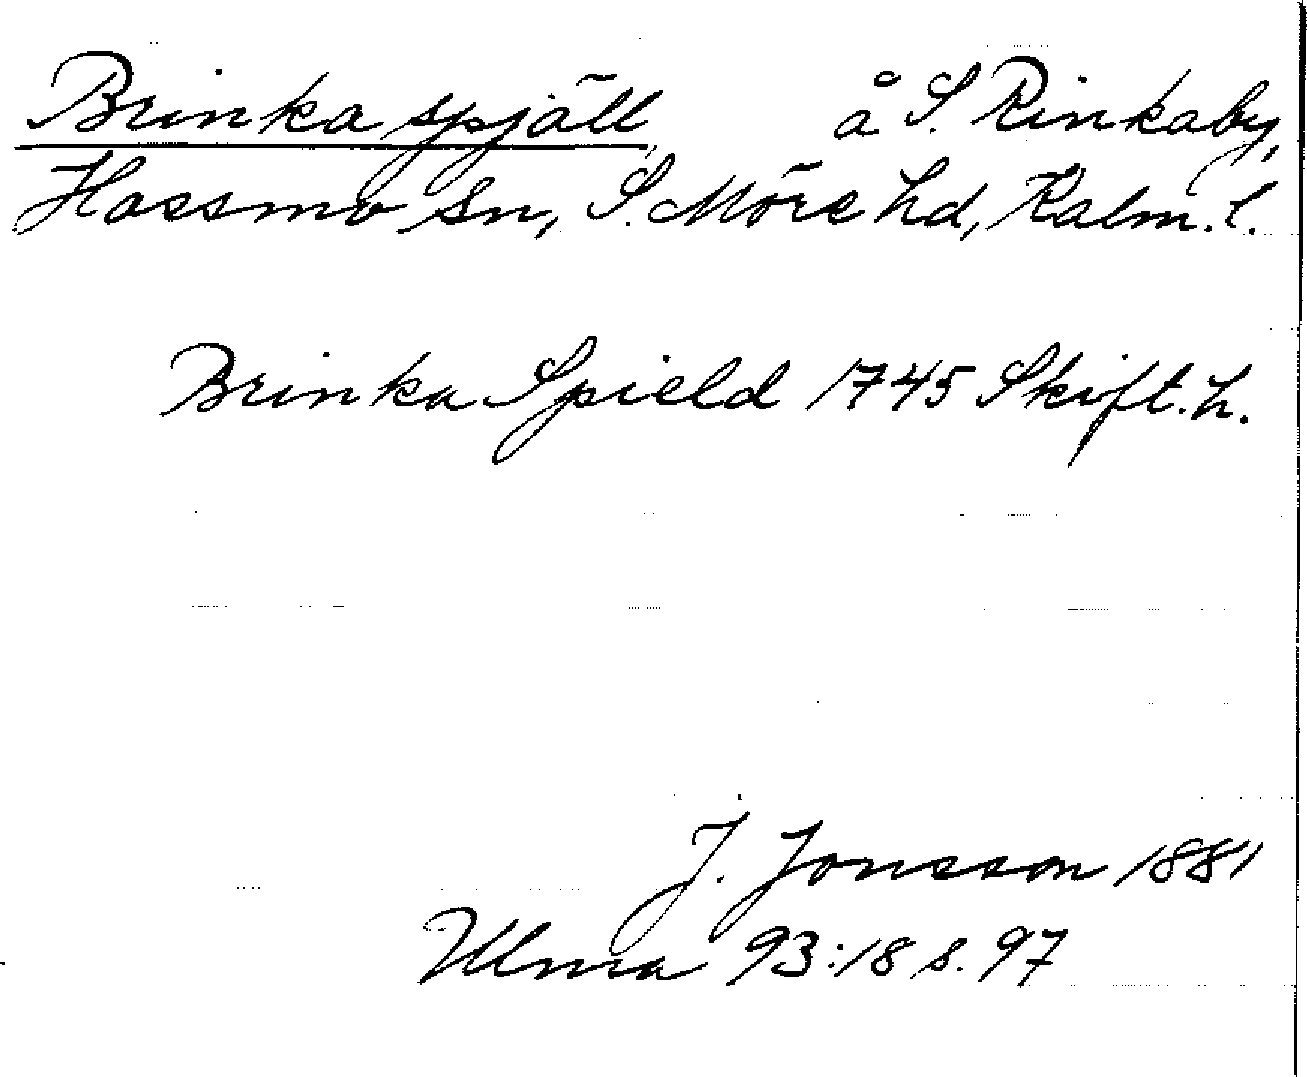 Brinka spjäll å S. Rinkaby,
Hossmo sn, S. Möre hd, Kalm. l.
Brinka Spield 1745 Skift. h.
J. Jonsson 1881
Ulma 93:18 s. 97